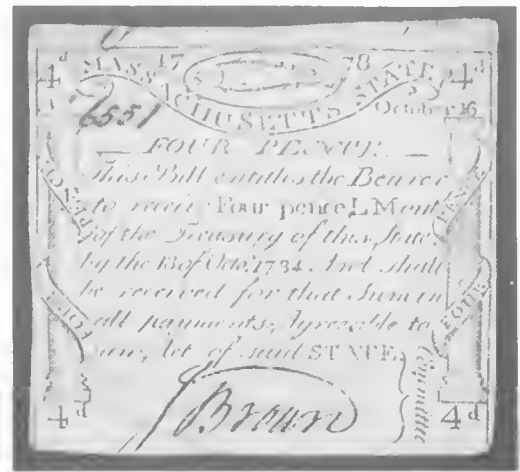 4d 17 78 4d
MASSACHUSETTS STATE
6551 October 16
FOUR PENCE
This Bill entitles the Bearer
to receive Four pence L. Mony
of the Treasury of this State
by the 18 of Octo. 1784. And shall
be received for that Sum in
all payments, Agreeable to
an, Act of said STATE.
Brown
Committee
FOUR PENCE
FOUR PENCE
4d 4d